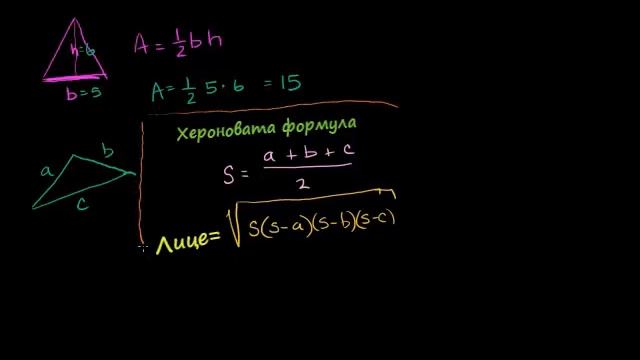 h=6
A = 1/2 b h
b=5
A = 1/2 5 · 6 = 15
Хероновата формула
a
b
c
S = a + b + c / 2
Лице= √S(s-a)(s-b)(s-c)